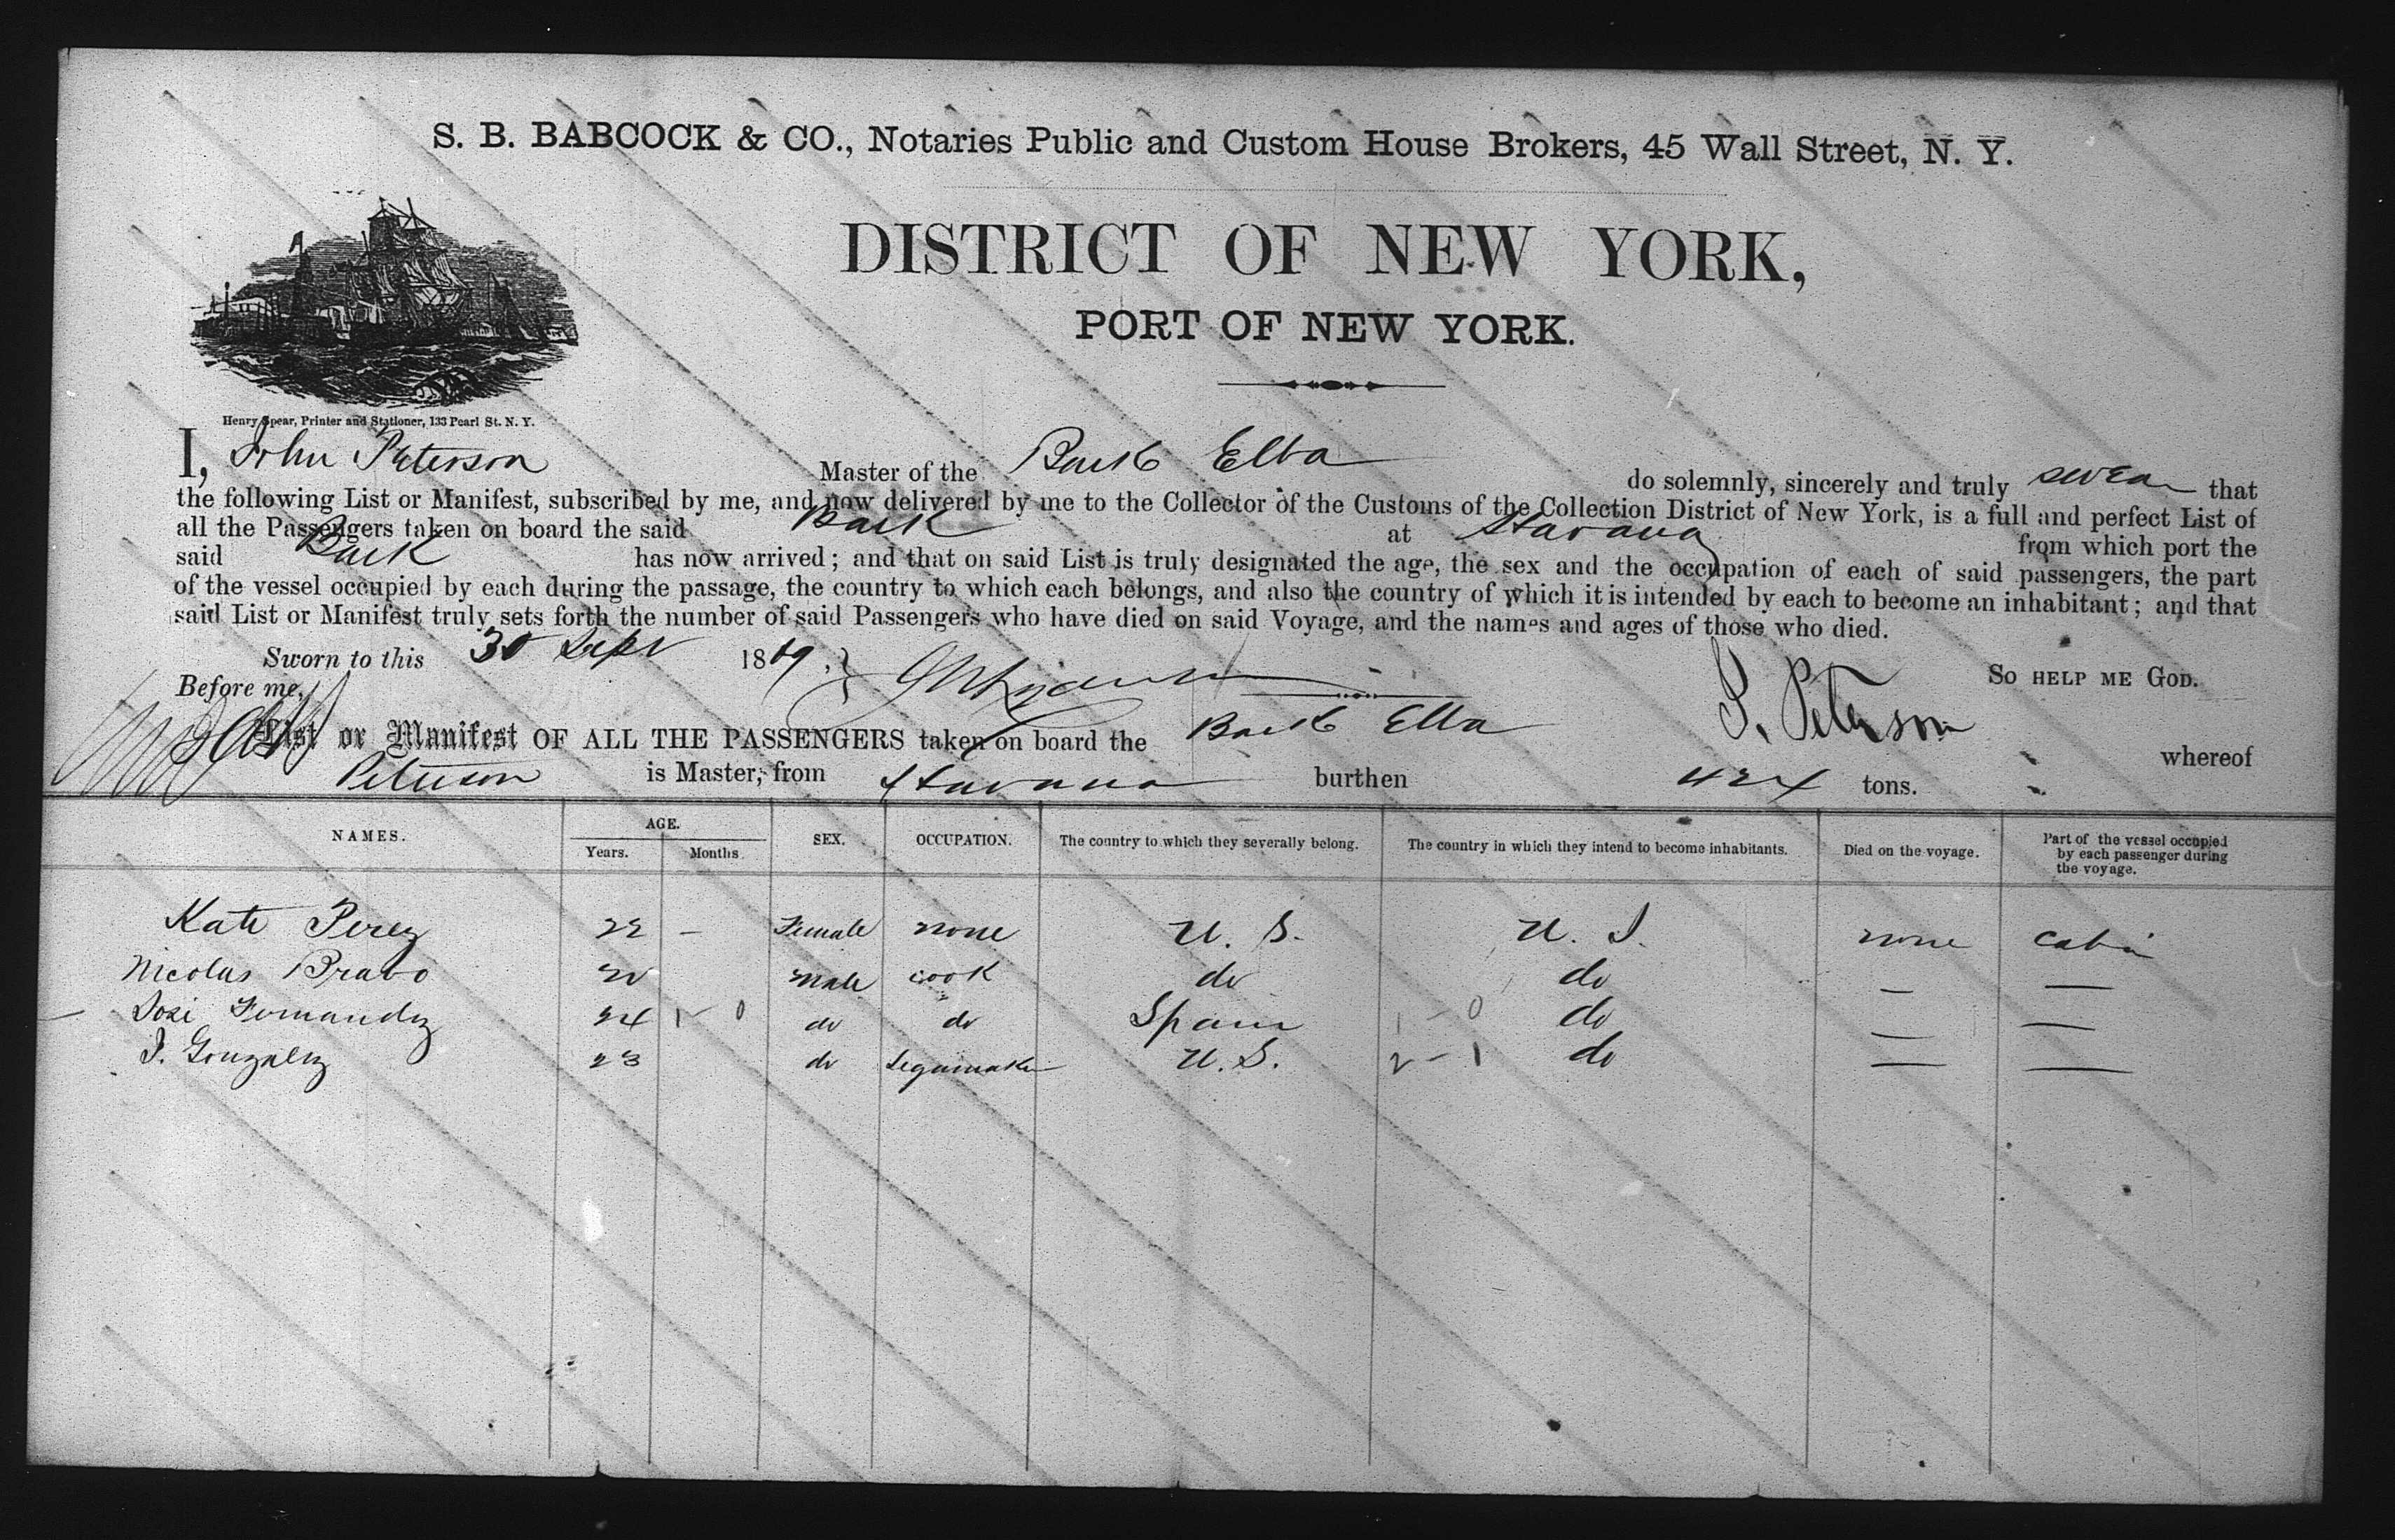 S. B. BABCOCK & CO., Notaries Public and Custom House Brokers, 45 Wall Street, N. Y.
DISTRICT OF NEW YORK,
PORT OF NEW YORK.
Henry Spear, Printer and Stationer, 133 Pearl St. N. Y.
I, John Peterson Master of the Bark Elba do solemnly, sincerely and truly swear that
the following List or Manifest, subscribed by me, and now delivered by me to the Collector of the Customs of the Collection District of New York, is a full and perfect List of
all the Passengers taken on board the said Bark at Havana from which port the
said Bark has now arrived; and that on said List is truly designated the age, the sex and the occupation of each of said passengers, the part
of the vessel occupied by each during the passage, the country to which each belongs, and also the country of which it is intended by each to become an inhabitant; and that
said List or Manifest truly sets forth the number of said Passengers who have died on said Voyage, and the names and ages of those who died.
Sworn to this 30 Sept 1869. So HELP ME GOD.
Before me, J. Peterson
List or Manifest OF ALL THE PASSENGERS taken on board the Bark Elba whereof
Peterson is Master, from Havana burthen 424 tons.
NAMES. AGE. Years. Months SEX. OCCUPATION. The country to which they severally belong. The country in which they intend to become inhabitants. Died on the voyage. Part of the vessel occupied by each passenger during the voyage.
Kate Perez 22 - Female none U. S. U. S. none cabin
Nicolas Bravo 20 male cook do do — —
Jose Fernandez 24 1 - 0 do do Spain 1 - 0 do — —
J. Gonzalez 23 do Segarmaker U. S. 2 - 1 do — —